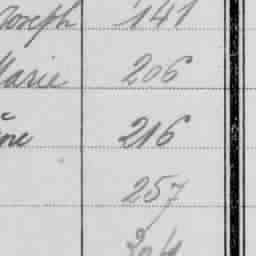 Joseph 141
Marie 206
216
257